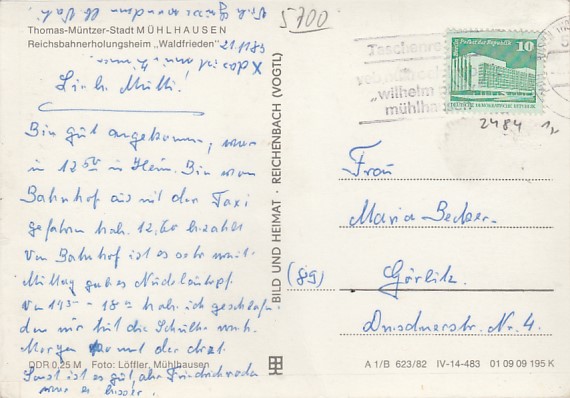 5700
Thomas-Müntzer-Stadt MÜHLHAUSEN
Reichsbahnerholungsheim „Waldfrieden"
21.11.83
Liebe Mutti!
Bin gut angekommen, war
in 12 50 in Heim. Bin vom
Bahnhof aus mit der Taxi
gefahren hab. 12,60 bezahlt
Vom Bahnhof ist es sehr weit.
Mittag gab es Nudeleintopf.
Von 14 - 18 hab ich geschlafen.
die Schulter weh.
Morgen kommt der Arzt.
Sonst ist es gut, aber Friedrichroda
war es besser.
DDR 0,25 M Foto: Löffler, Mühlhausen
BILD UND HEIMAT · REICHENBACH (VOGTL)
Taschenre
veb
„wilhelm
mühlha
10
Palast der Republik
DEUTSCHE DEMOKRATISCHE REPUBLIK
2484
Frau
Maria Becker.
(89) Görlitz.
Dresdnerstr. Nr. 4.
A 1/B 623/82 IV-14-483 01 09 09 195 K